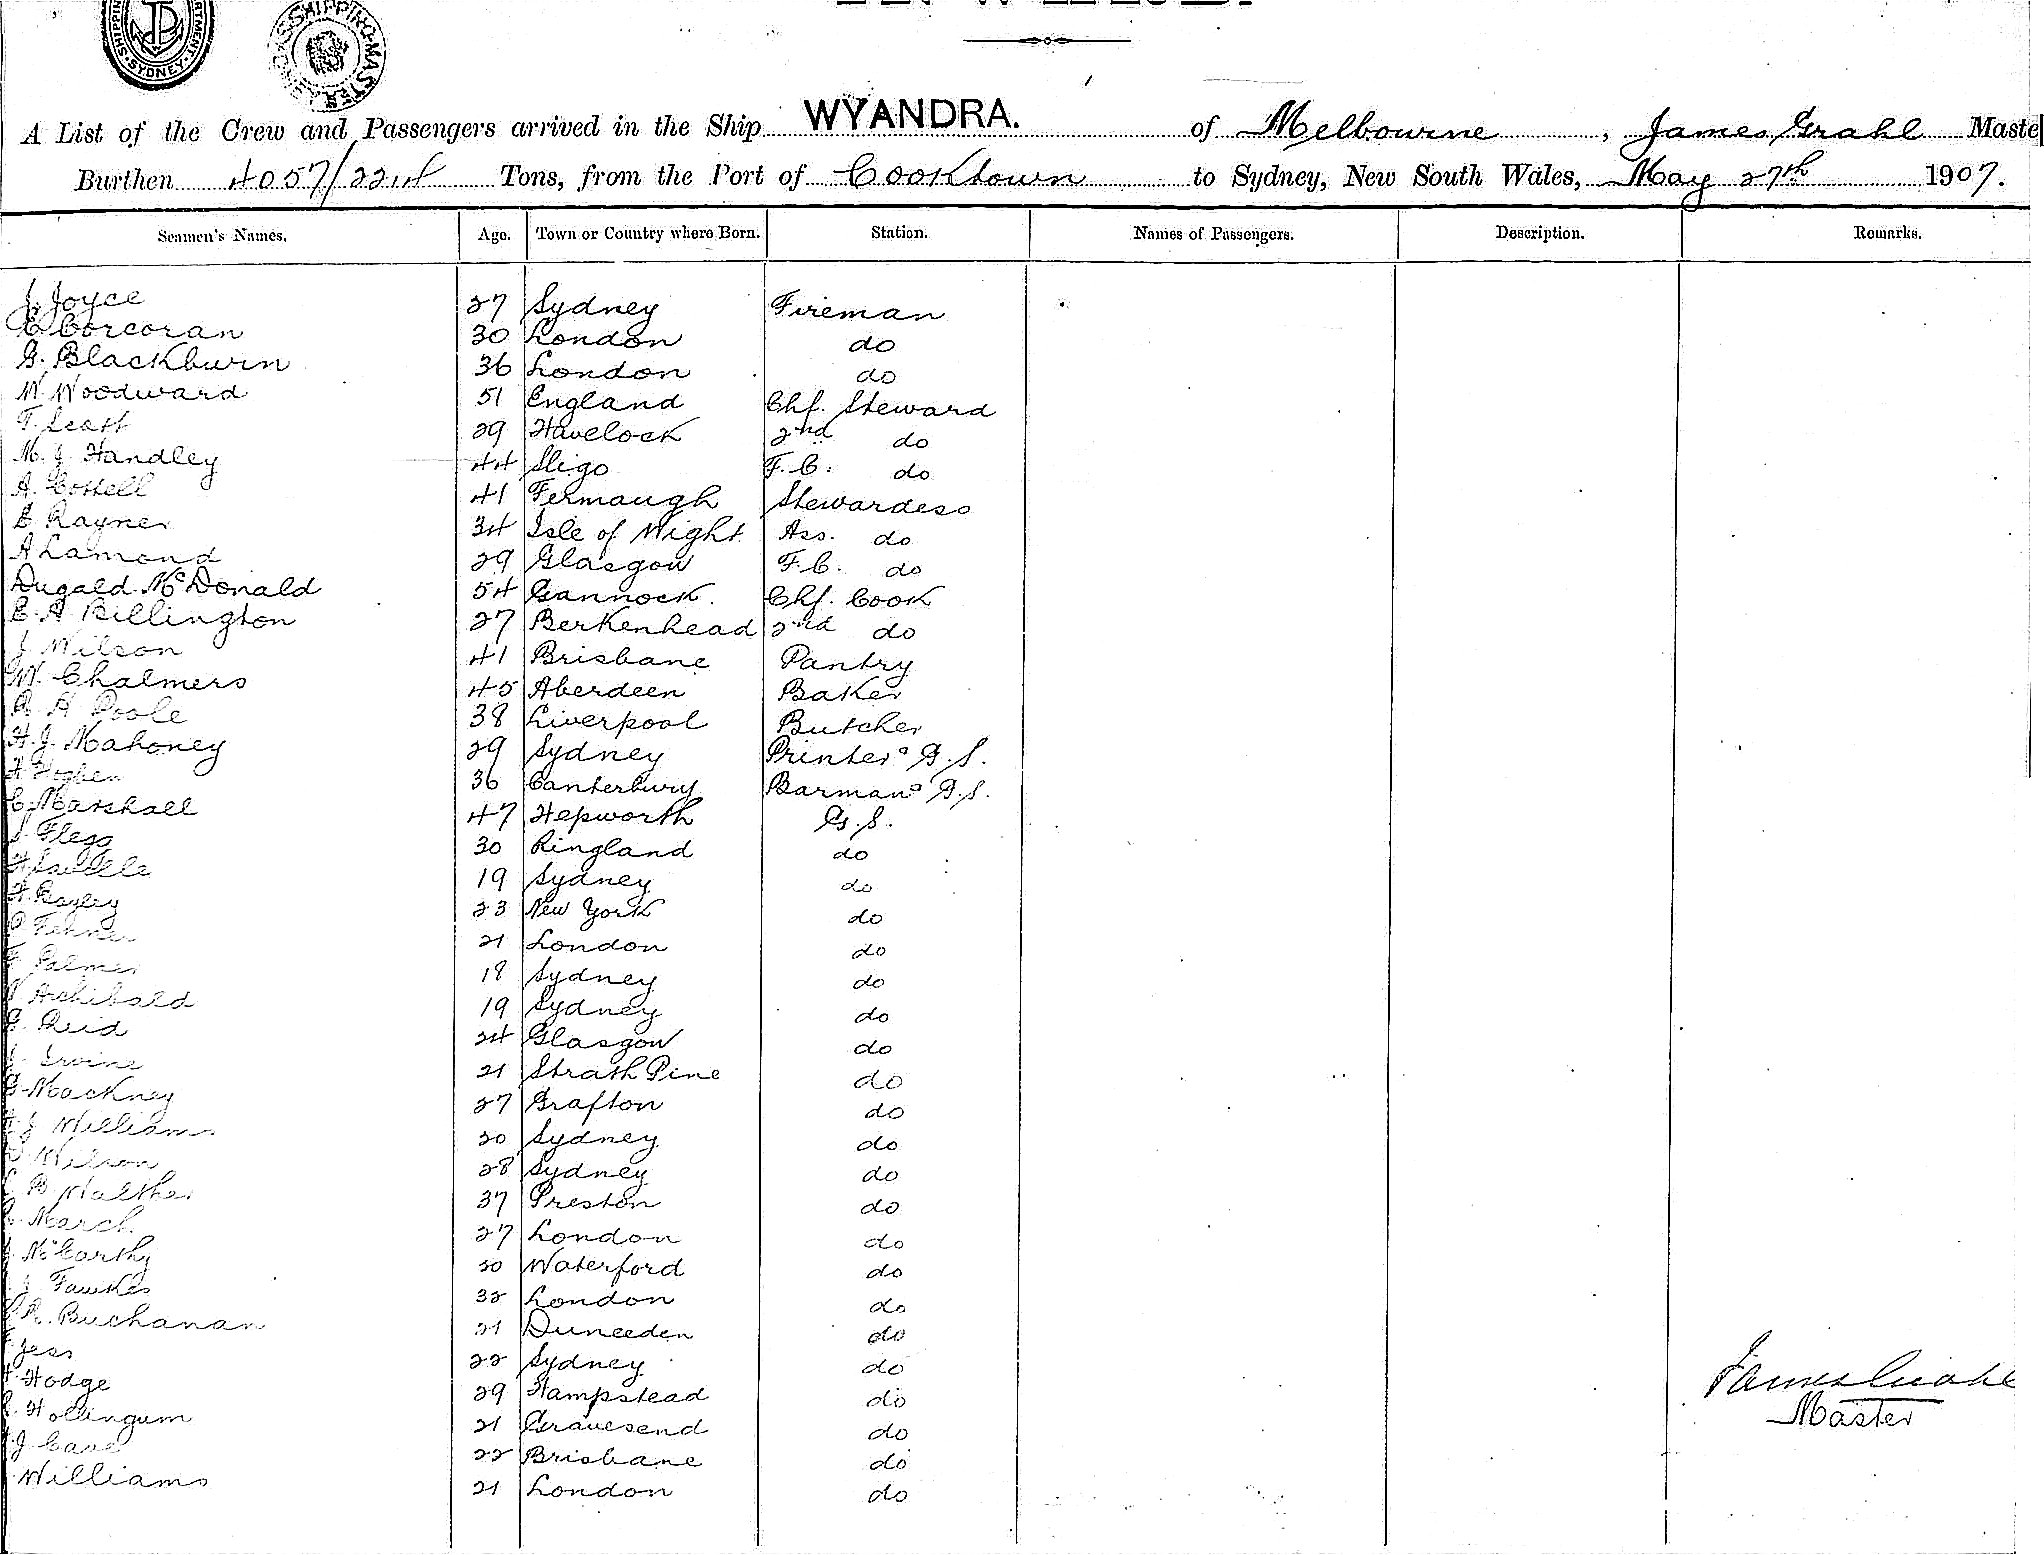 SYDNEY
SHIPPING MASTER
A List of the Crew and Passengers arrived in the Ship WYANDRA. of Melbourne, James Grahl Maste
Burthen 4057/2214 Tons, from the Port of Cooktown to Sydney, New South Wales, May 27th 1907.
Seamen's Names. Age. Town or Country where Born. Station. Names of Passengers. Description. Remarks.
J. Joyce 27 Sydney Fireman
E Corcoran 30 London do
G. Blackburn 36 London do
W. Woodward 51 England Chf. Steward
T. Scott 29 Havelock 2nd do
M. J. Handley 44 Sligo F.C. do
A. Cottell 41 Fermaugh Stewardess
E Rayner 34 Isle of Wight Ass. do
A Lamond 29 Glasgow F.C. do
Dugald McDonald 54 Gannock. Chf. Cook
E. A Billington 27 Berkenhead 2nd do
J Wilson 41 Brisbane Pantry
W. Chalmers 45 Aberdeen Baker
R H Poole 38 Liverpool Butcher
H. J. Mahoney 29 Sydney Printer & G.S.
H Hogben 36 Canterbury Barman & G.S.
C. Marshall 47 Hepworth G.S.
S. Flegg 30 Ringland do
H Saville 19 Sydney do
H. Bayley 23 New York do
Fehner 21 London do
F Palmer 18 Sydney do
Archibald 19 Sydney do
G. Reid 24 Glasgow do
J. Irvine 21 Strath Pine do
G Mackney 27 Grafton do
J Williams 20 Sydney do
Wilson 28 Sydney do
B Walther 37 Preston do
March 27 London do
McCarthy 20 Waterford do
J Fawkes 32 London do
R. Buchanan 21 Duneeden do
Jess 22 Sydney do
Hodge 29 Hampstead do
Hollingum 21 Gravesend do
J Cave 22 Brisbane do
Williams 21 London do
James Grahl
Master